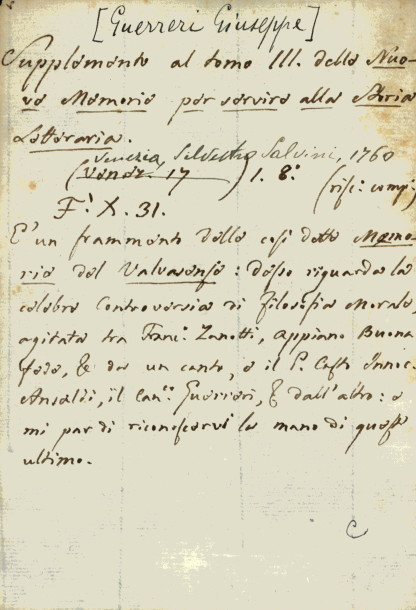 [Guerreri Giuseppe]
Supplemento al tomo III. delle Nuo-
ve Memorie per servire alla Storia
Letteraria.
Venezia, Silvestro Salvini, 1760
(Venez. 17 ) 1. 8.° (rise: comp:)
F. X. 31.
E' un frammento delle così dette Memo-
rie del Valvasense: desso riguarda la
celebre Controversia di Filosofia Morale,
agitata tra Franc. Zanotti, Appiano Buona
fede, & da un canto, e il P. Casto Innoc.
Ansaldi, il Can.° Guerreri, & dall'altro: e
mi par di riconoscervi la mano di quest
ultimo.
C